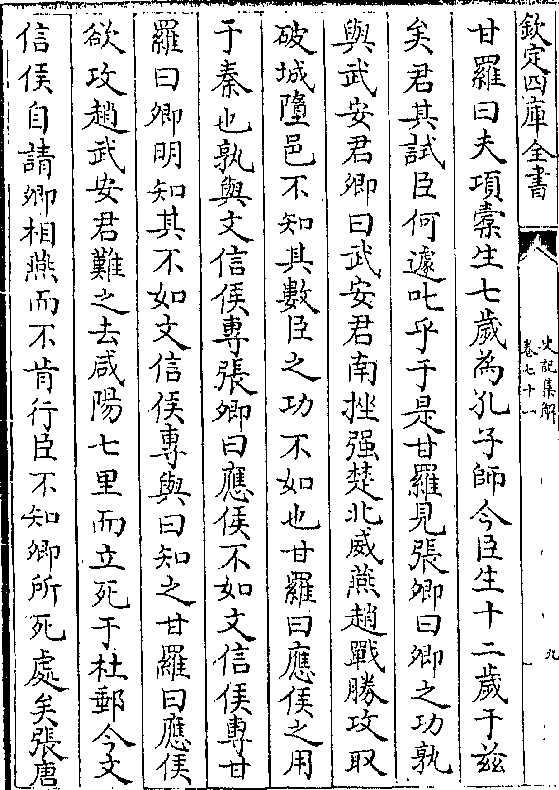 欽定四庫全書
史記集解
卷七十一
九
甘羅曰夫項橐生七歲為孔子師今臣生十二歲于茲
矣君其試臣何遽叱乎于是甘羅見張卿曰卿之功孰
與武安君卿曰武安君南挫强楚北威燕趙戰勝攻取
破城墮邑不知其數臣之功不如也甘羅曰應侯之用
于秦也孰與文信侯專張卿曰應侯不如文信侯專甘
羅曰卿明知其不如文信侯專與曰知之甘羅曰應侯
欲攻趙武安君難之去咸陽七里而立死于杜郵今文
信侯自請卿相燕而不肯行臣不知卿所死處矣張唐